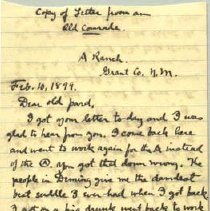 Copy of Letter from an
Old Comrade.
A Ranch.
Grant Co. N.M.
Feb. 10, 1899.
Dear old pard,
I got your letter to day and I was
glad to hear from you. I come back here
and went to work again for the A instead
of the @. you got that down wrong. The
people in Deming give me the darndest
best saddle I ever had when I got back
I got on a big drunk went back to work